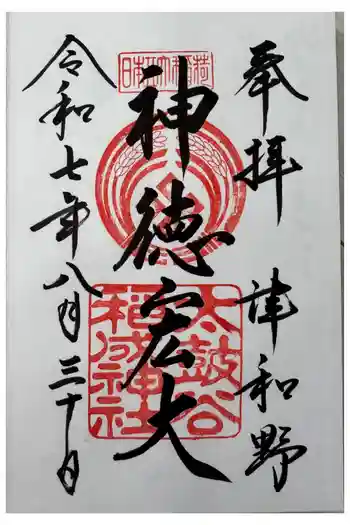 奉拝 津和野
日本五大稲荷
神徳宏大
太鼓谷
稲成神社
令和七年八月三十日